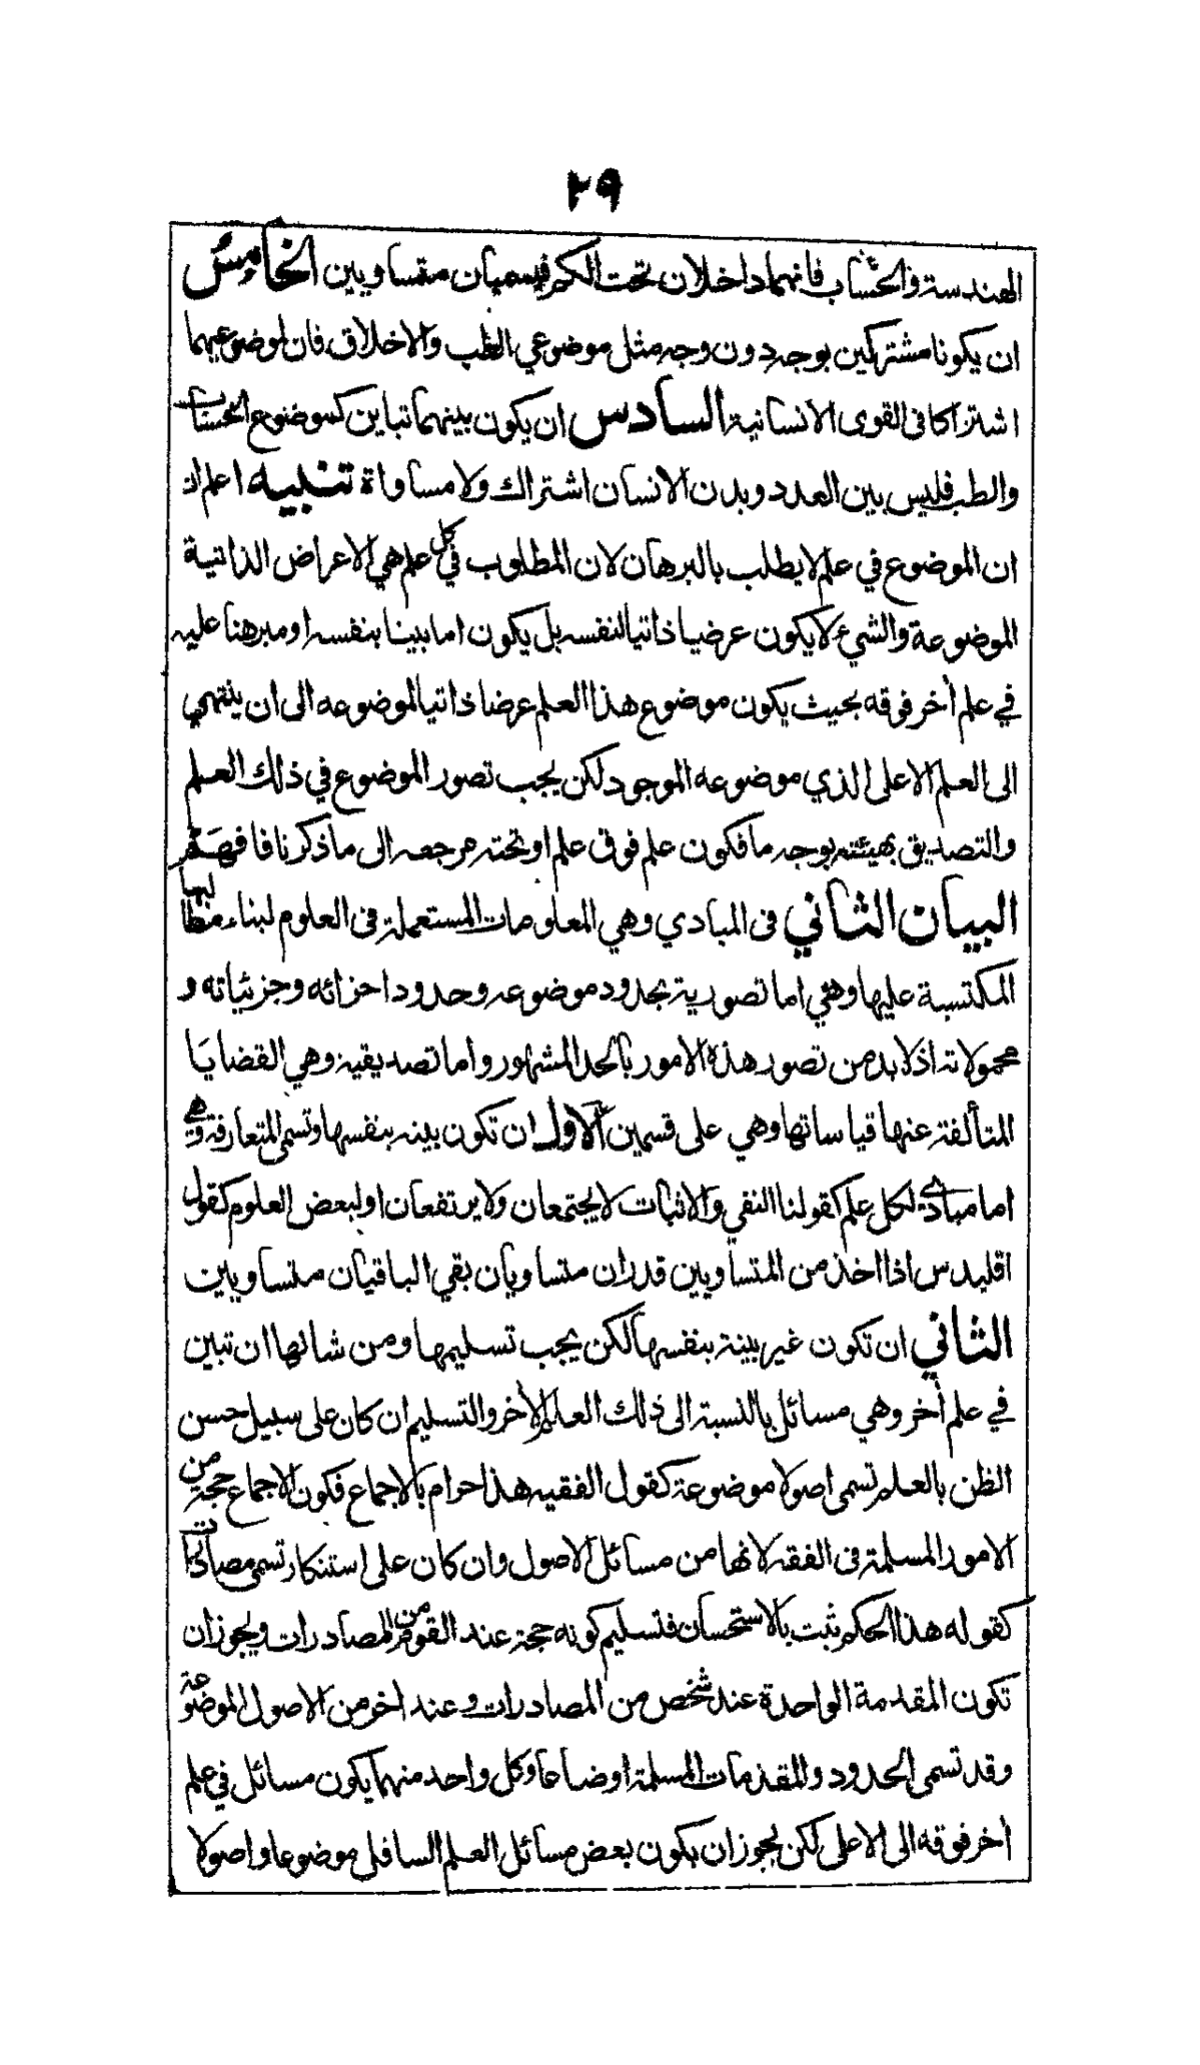 ٢٩
الهندسة والحساب فانهما داخلان تحت الكم فيسميان متساويين الخامس
ان يكونا مشتركين بوجه دون وجه مثل موضوعي الطب والاخلاق فان لموضوعيهما
اشتراكا فى القوى الانسانية السادس ان يكون بينهما تباين كموضوع الحساب
والطب فليس بين العدد وبدن الانسان اشتراك ولا مساواة تنبيه اعلم ان
ان الموضوع في علم لا يطلب بالبرهان لان المطلوب في كل علم هي الاعراض الذاتية
الموضوعة والشيء لا يكون عرضيا ذاتيا لنفسه بل يكون اما بينا بنفسه او مبرهنا عليه
في علم أخر فوقه بحيث يكون موضوع هذا العلم عرضا ذاتيا لموضوعه الى ان ينتهي
الى العلم الاعلى الذي موضوعه الموجود لكن يجب تصور الموضوع في ذلك العلم
والتصديق بهيئته بوجه ما فكون علم فوق علم او تحته مرجعه الى ما ذكرنا فافهم
البيان الثاني فى المبادي وهي المعلومات المستعملة فى العلوم لبناء مطالبها
المكتسبة عليها وهي اما تصورية بحدود موضوعه وحدود اجزائه وجزئياته و
محمولاته اذ لا بد من تصور هذه الامور بالحد المشهور واما تصديقية وهي القضايا
المتألفة عنها قياساتها وهي على قسمين الاول ان تكون بينه بنفسها وتسمى المتعارفة وهي
اما مبادي لكل علم كقولنا النفي والاثبات لا يجتمعان ولا يرتفعان او لبعض العلوم كقول
اقليدس اذا اخذ من المتساويين قدران متساويان بقي الباقيان متساويين
الثاني ان تكون غير بينة بنفسها لكن يجب تسليمها ومن شانها ان تبين
في علم أخر وهي مسائل بالنسبة الى ذلك العلم الأخر والتسليم ان كان على سبيل حسن
الظن بالعلم تسمى اصولا موضوعة كقول الفقيه هذا حرام بالاجماع فكون الاجماع حجة من
الامور المسلمة فى الفقه لانها من مسائل الاصول وان كان على استنكار تسمى مصادرات
كقوله هذا الحكم ثبت بالاستحسان فتسليم كونه حجة عند القوم من المصادرات ويجوز ان
تكون المقدمة الواحدة عند شخص من المصادرات وعند اخر من الاصول الموضوعة
وقد تسمى الحدود والمقدمات المسلمة اوضاعا وكل واحد منهما يكون مسائل في علم
اخر فوقه الى الاعلى لكن يجوز ان يكون بعض مسائل العلم السافل موضوعا واصولا